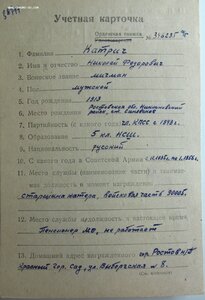 Учетная карточка
Орденская книжка
№ 316235
1. Фамилия Катрич
2. Имя и отчество Николай Федорович
3. Воинское звание мичман
4. Пол мужской
5. Год рождения 1918
Ростовская обл.
6. Место рождения
7. Партийность (с какого года) чл. КПСС с 1943 г.
8. Образование 5 кл. НСШ.
9. Национальность русский
10. С какого года в Советской Армии
11. Место службы (наименование части) и занимаемая должность в момент награждения
старшина мотора, войсковая часть 90005.
12. Место службы и должность в настоящее время
Пенсионер МО, не работает
13. Домашний адрес награжденного гор. Ростов н/Д
Красный гор. сад, ул. Выборгская № 8.